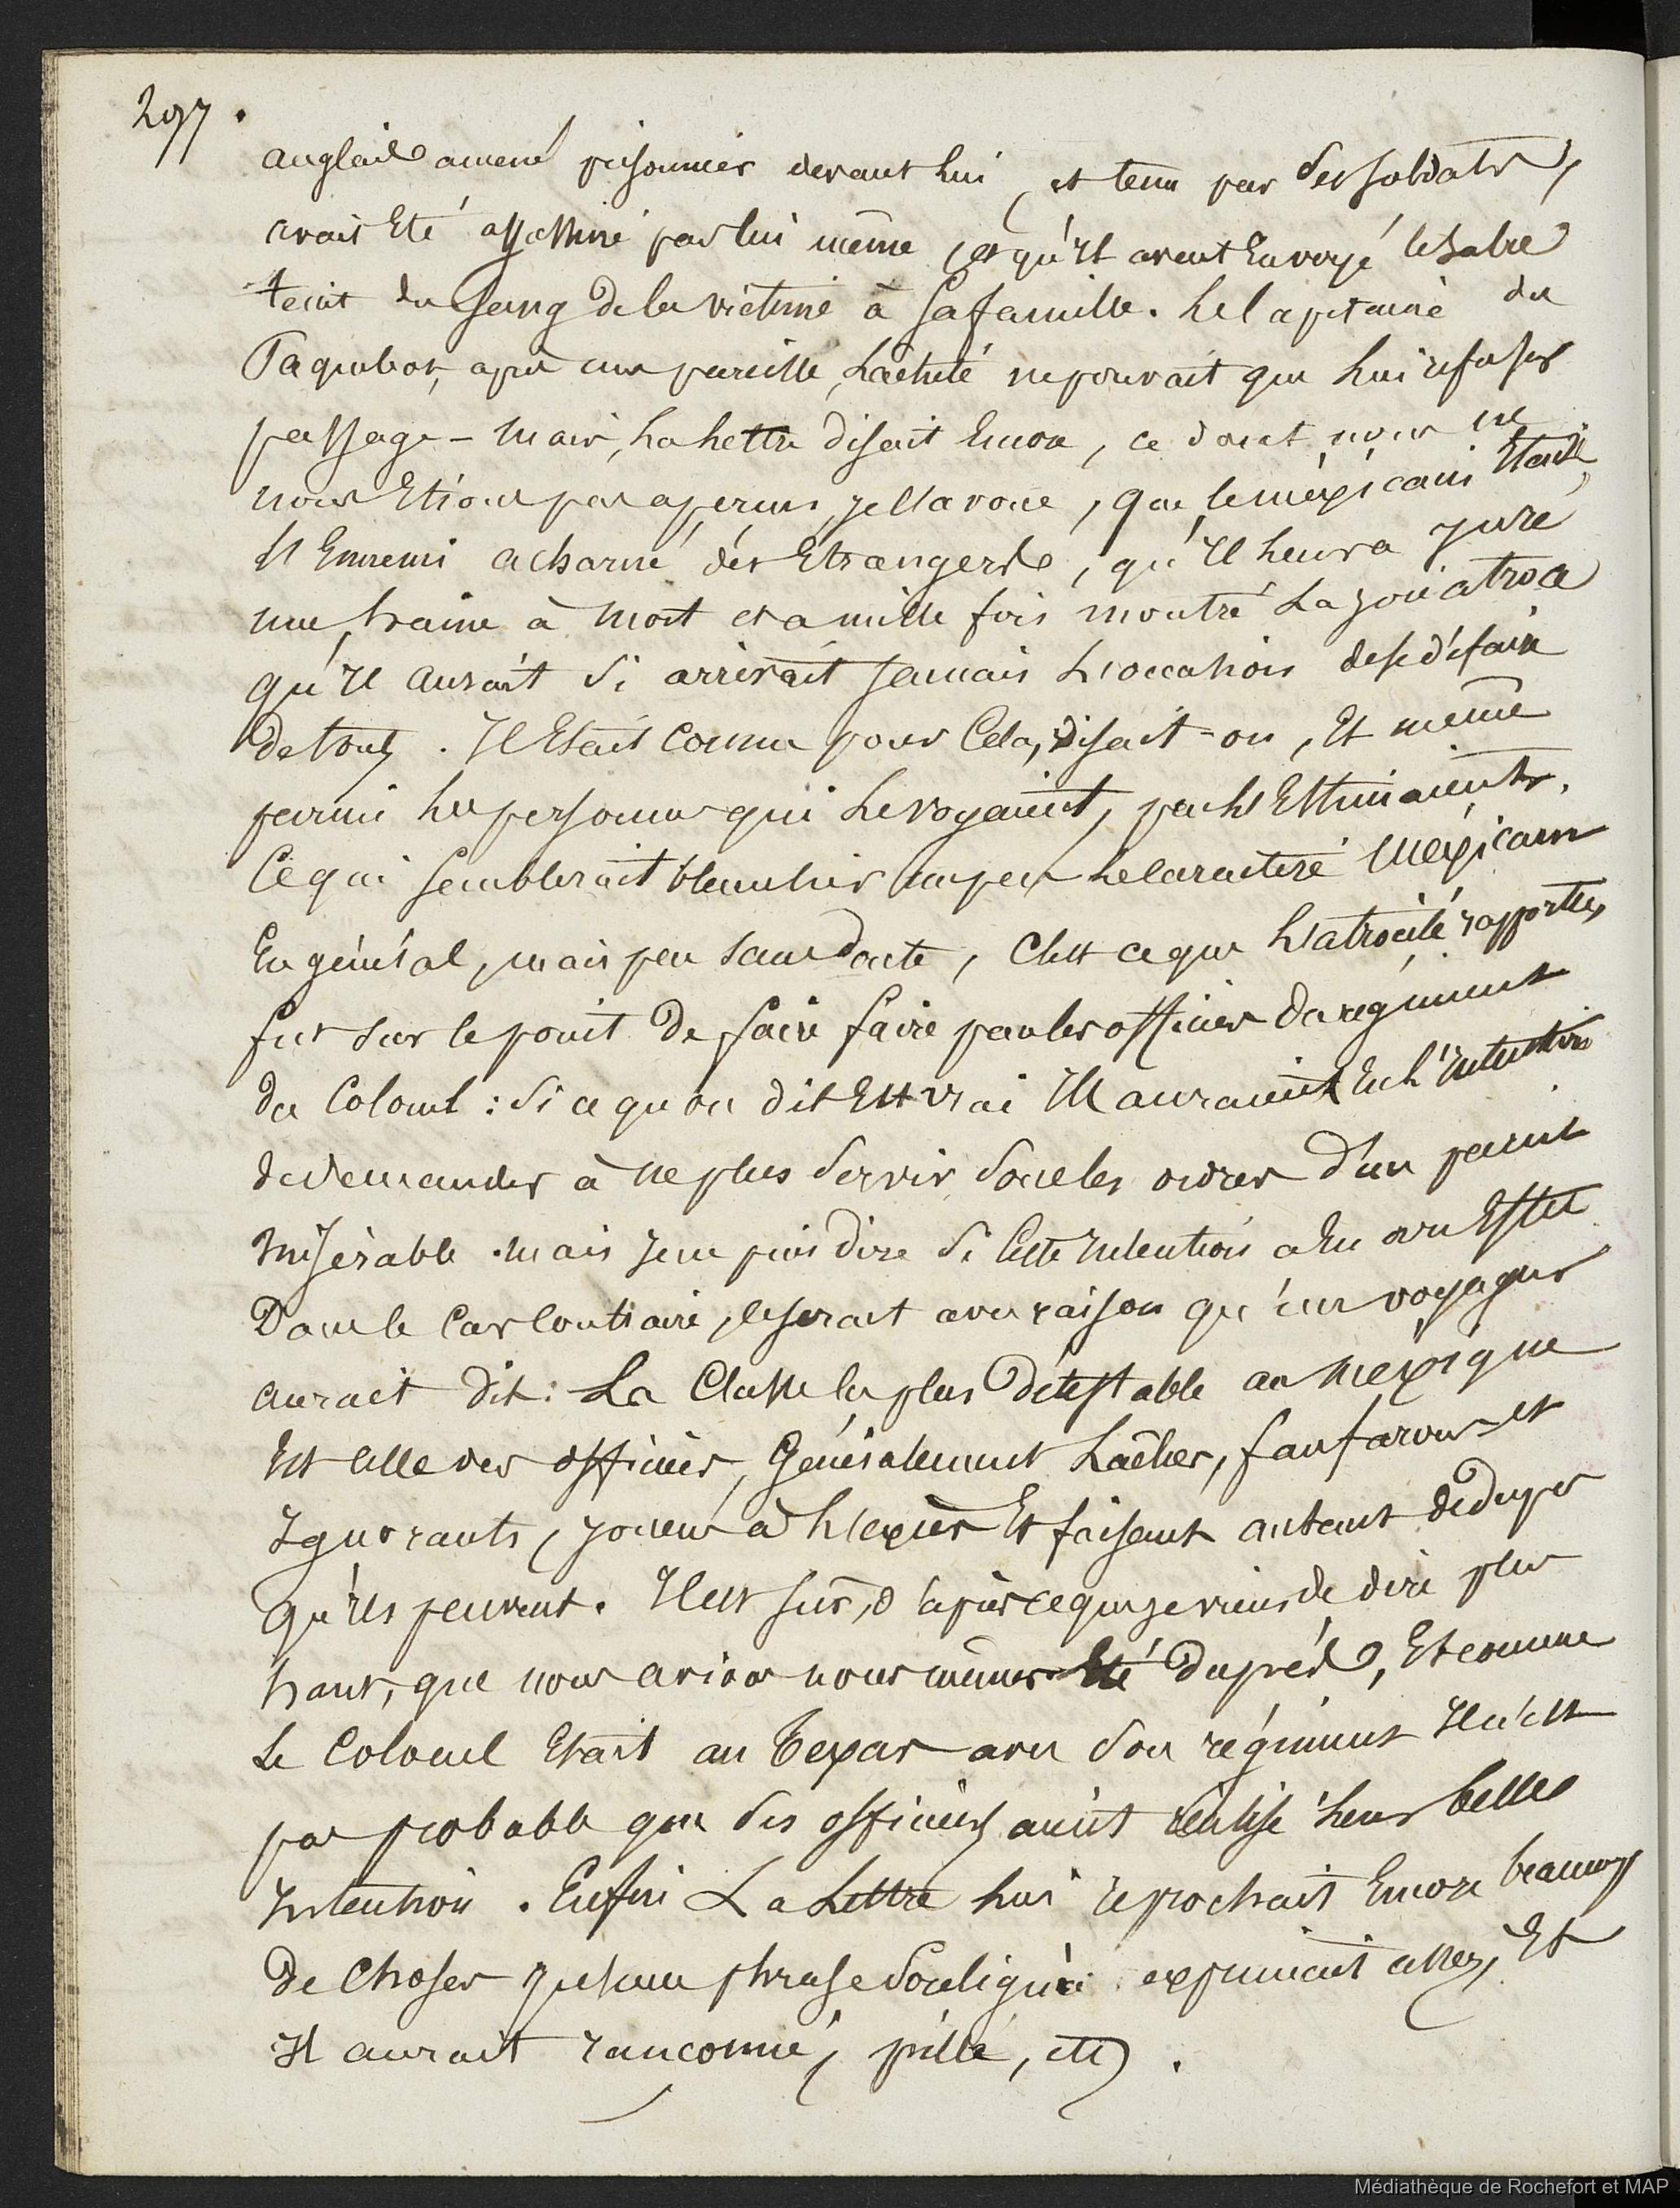 297.
anglais amené prisonnier devant lui, et tenu par des soldats,
avait été assassiné par lui même, et qu'il avait Envoyé le sabre
teint du sang de la victime à sa famille. Le Capitaine du
Paquebot, après une pareille Lâcheté ne pouvait que lui refuser
passage - mais, La Lettre disait Encore, ce dont nous ne
nous Etions pas aperçus, je l'avoue, que le méxicain Etait
l'Ennemi acharné des Etrangers, qu'Il leur a juré
une haine à mort et a mille fois montré La joie atroce
qu'Il aurait si arrivait jamais L'occasion de se défaire
de tous. Il Etait Connu pour Cela, disait-on, Et même
parmi les personnes qui Le voyaient, peu l'Estimaient.
Ce qui semblerait blanchir un peu Le Caractère Méxicain
En général, mais peu sans doute, C'est ce que L'atrocité rapportée
fut sur le point de faire faire par les officiers du régiment
du Colonel : Si ce qu'on dit Est vrai Ils auraient Eu l'Intention
de demander à ne plus servir sous les ordres d'un pareil
misérable. mais je ne puis dire Si Cette Intention a Eu son Effet
Dans le Cas Contraire, ce serait avec raison qu'un voyageur
aurait dit : La Classe la plus Détestable au Mexique
Est Celle des officiers, Généralement Lâches, fanfarons et
Ignorants, joueurs à L'excès Et faisant autant de dupes
qu'Ils peuvent. Il est sûr, d'après ce que je viens de dire plus
haut, que nous avions nous mêmes Eté Dupés, Et comme
Le Colonel Etait au Texas avec Son régiment Il n'est
pas probable que Ses officiers aient réalisé Leur belle
Intention. Enfin La Lettre Lui reprochait Encore beaucoup
De Choses qu'une phrase Soulignée exprimait assez, Et
Il aurait rançonné, pillé, etc.
Médiathèque de Rochefort et MAP